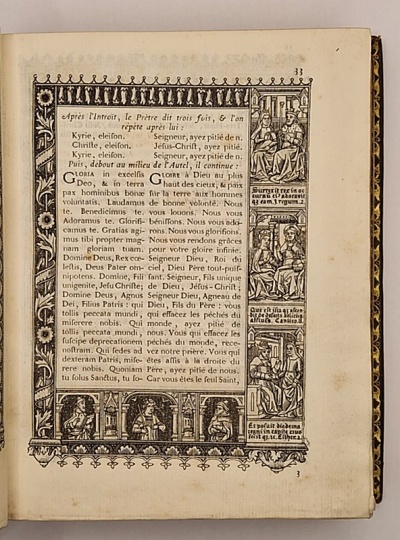 33
Après l'Introit, le Prêtre dit trois fois, & l'on
répete après lui :
Kyrie, eleison.
Christe, eleison.
Kyrie, eleison.
Seigneur, ayez pitié de n.
Jésus-Christ, ayez pitié.
Seigneur, ayez pitié de n.
Puis, debout au milieu de l'Autel, il continue :
GLORIA in excelsis
Deo, & in terra
pax hominibus bonæ
voluntatis. Laudamus
te. Benedicimus te.
Adoramus te. Glorifi-
camus te. Gratias agi-
mus tibi propter mag-
nam gloriam tuam.
Domine Deus, Rex cœ-
lestis, Deus Pater om-
nipotens. Domine, Fili
unigenite, Jesu Christe;
Domine Deus, Agnus
Dei, Filius Patris : qui
tollis peccata mundi,
miserere nobis. Qui
tollis peccata mundi,
suscipe deprecationem
nostram. Qui sedes ad
dexteram Patris, mise-
rere nobis. Quoniam
tu solus Sanctus, tu so-
GLOIRE à Dieu au plus
haut des cieux, & paix
sur la terre aux hommes
de bonne volonté. Nous
vous louons. Nous vous
bénissons. Nous vous ado-
rons. Nous vous glorifions.
Nous vous rendons grâces
pour votre gloire infinie.
Seigneur Dieu, Roi du
ciel, Dieu Père tout-puis-
sant. Seigneur, Fils unique
de Dieu, Jésus-Christ ;
Seigneur Dieu, Agneau de
Dieu, Fils du Père : vous
qui effacez les péchés du
monde, ayez pitié de
nous. Vous qui effacez les
péchés du monde, rece-
vez notre prière. Vous qui
êtes assis à la droite du
Père, ayez pitié de nous.
Car vous êtes le seul Saint,
Surrexit rex in oc
eam. 3. regum. 2.
Que est ista q; ascen
Cantico. 8.
Et posuit diadema
regni in capite
Esther. 2.
3